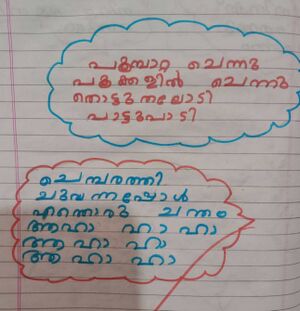 പൂമ്പാറ്റ ചെന്നു
പൂക്കളിൽ ചെന്നു
തൊട്ടുതലോടി
പാട്ടുപാടി
ചെമ്പരത്തി
ചുവന്നപ്പോൾ
എന്തൊരു ചന്തം
ആഹാ ഹാ ഹാ
ആ ഹാ ഹാ
ആ ഹാ ഹാ